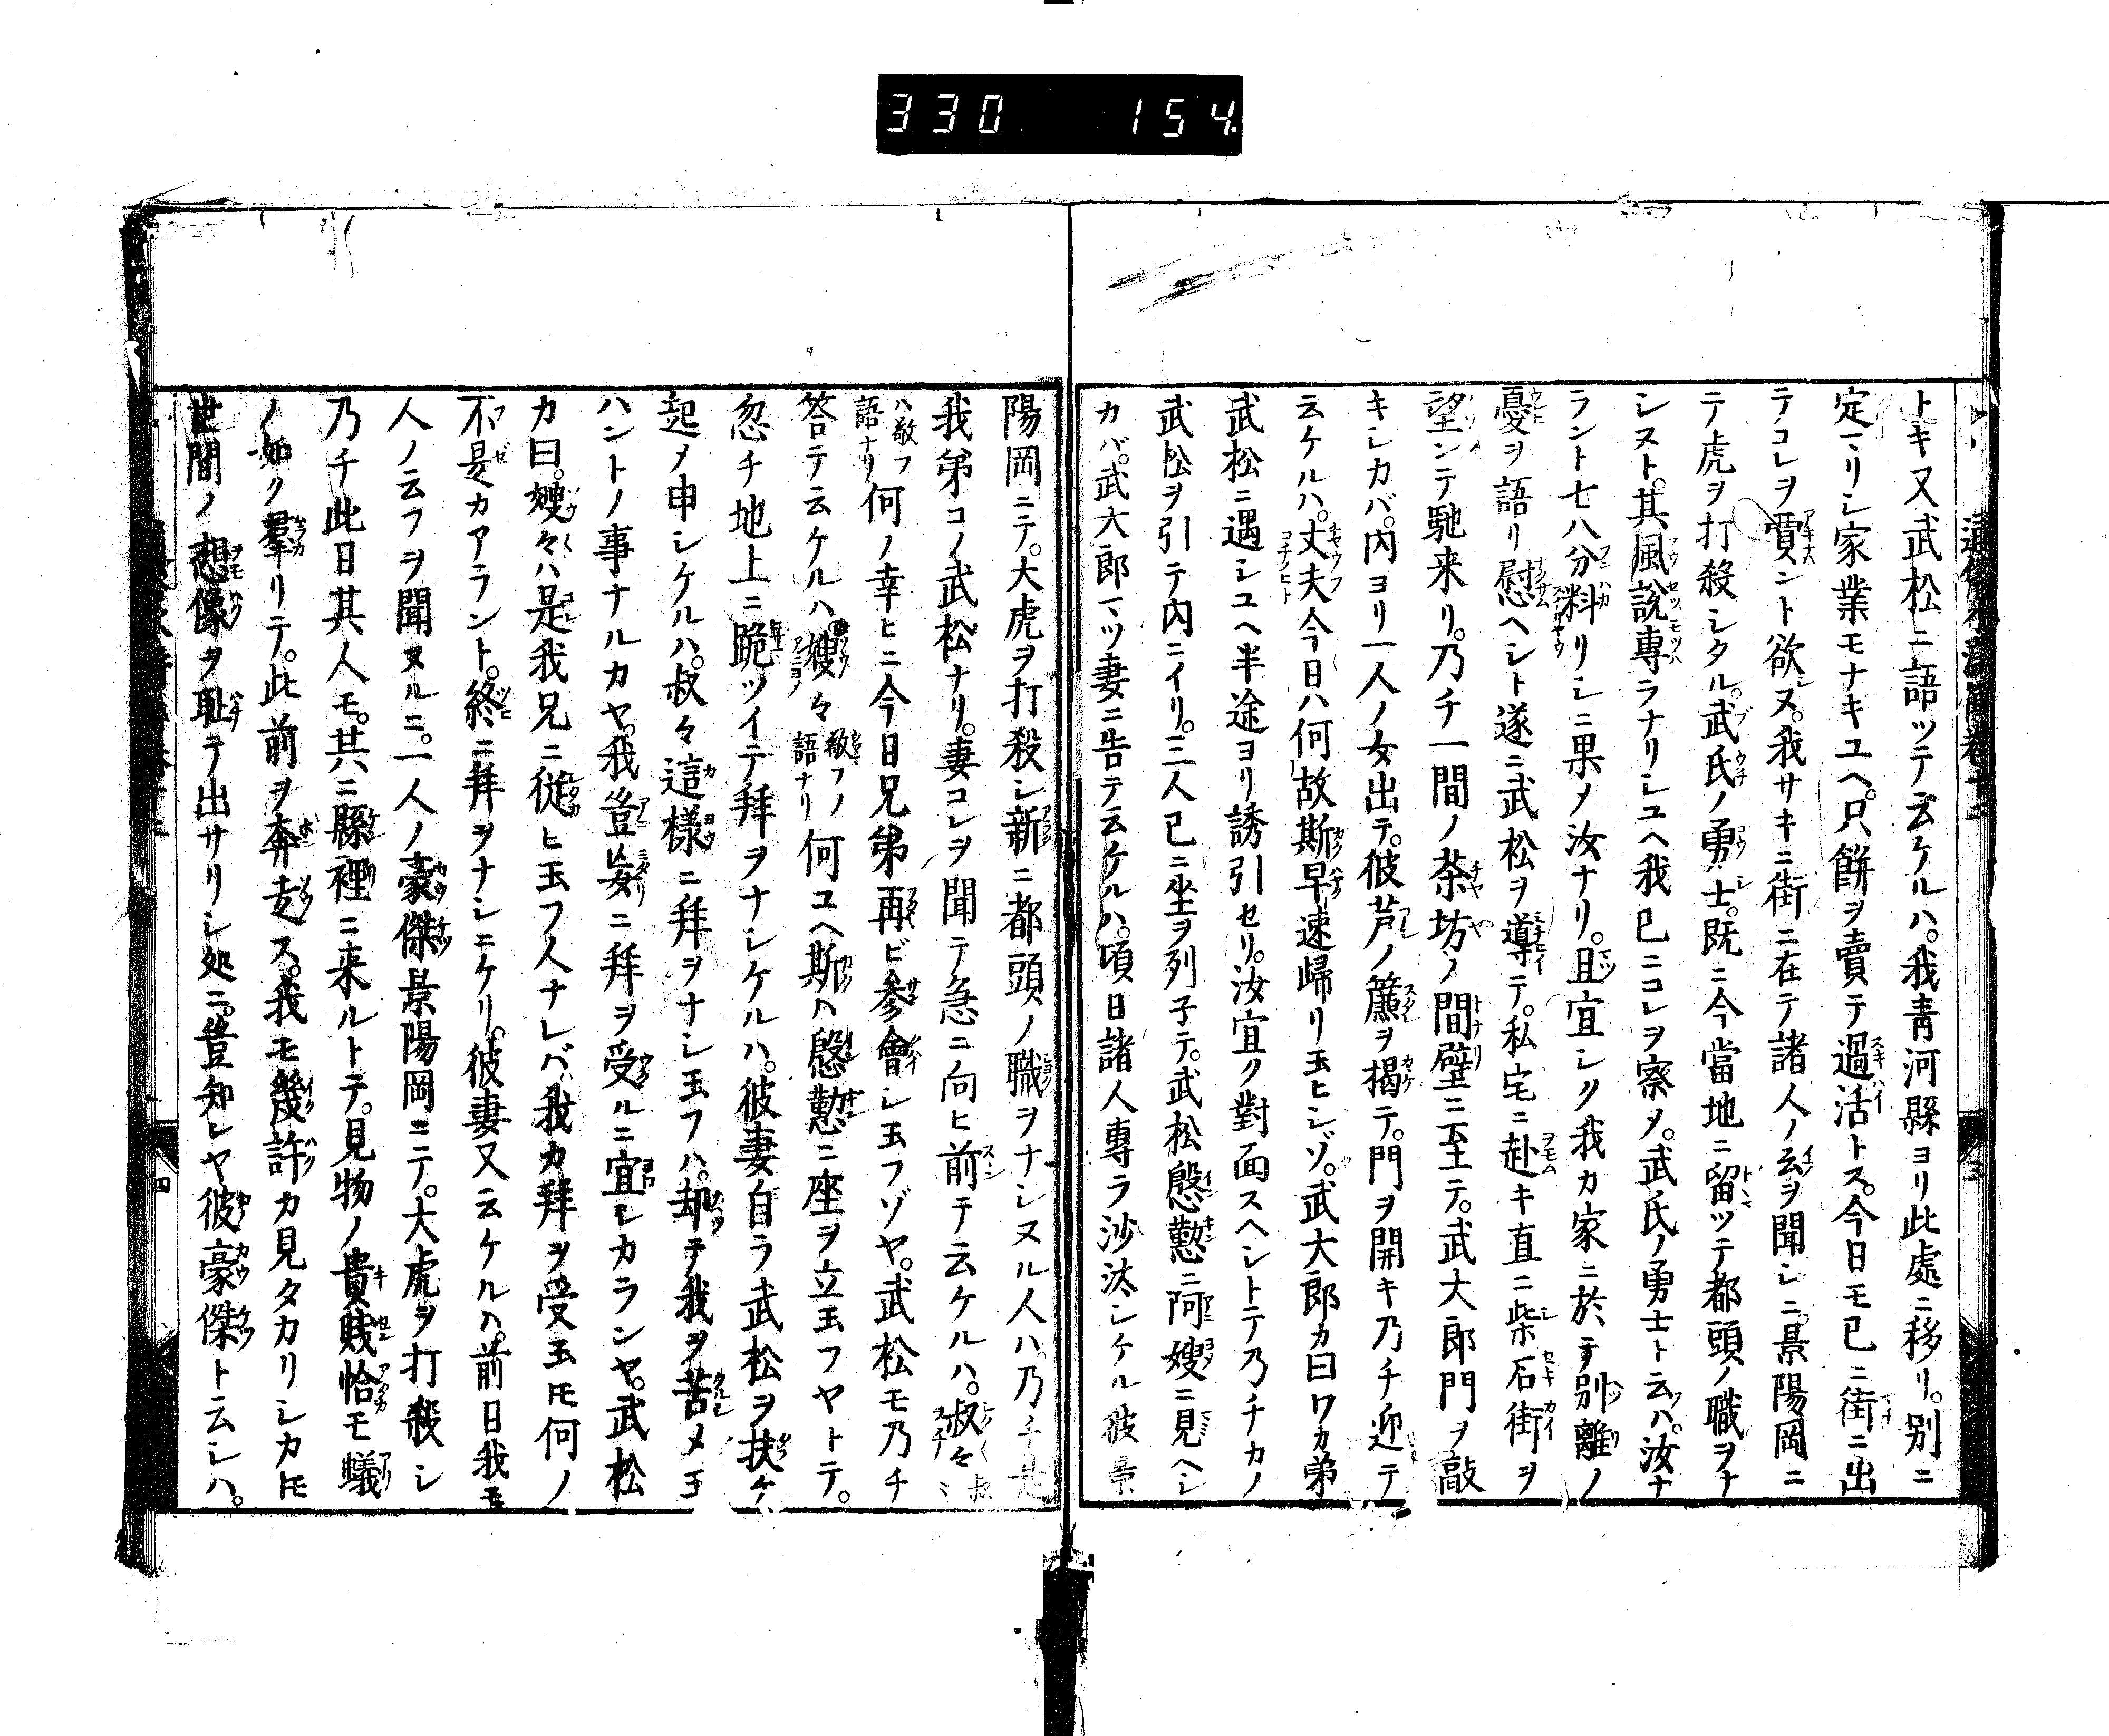 330 154
トキ又武松ニ語ツテ云ケルハ。我青河縣ヨリ此處ニ移リ。別ニ
定マリシ家業モナキユヘ。只餅ヲ賣テ過活トス。今日モ已ニ街ニ出
テコレヲ賣ント欲ス。我サキニ街ニ在テ諸人ノ云ヲ聞シニ。景陽岡ニ
テ虎ヲ打殺シタル。武氏ノ勇士。既ニ今當地ニ留ツテ都頭ノ職ヲナ
シヌト。其風説專ラナリシユヘ我已ニコレヲ察メ。武氏ノ勇士ト云ハ。汝ナ
ラント七八分料リシニ果ノ汝ナリ。且宜シク我カ家ニ於テ別離ノ
憂ヲ語リ慰ヘシト遂ニ武松ヲ導テ。私宅ニ赴キ直ニ柴石街ヲ
望ンテ馳来リ。乃チ一間ノ茶坊ノ間壁ニ至テ。武大郎門ヲ敲
キシカバ。内ヨリ一人ノ女出テ。彼芦ノ簾ヲ揭テ。門ヲ開キ乃チ迎テ
云ケルハ。丈夫今日ハ何故斯早速帰リ玉ヒシゾ。武大郎カ曰ワカ弟
武松ニ遇シユヘ半途ヨリ誘引セリ。汝宜ク對面スヘシトテ乃チカノ
武松ヲ引テ内ニイリ。三人已ニ坐ヲ列子テ。武松慇懃ニ阿嫂ニ見ヘシ
カバ。武大郎マツ妻ニ告テ云ケルハ。頃日諸人專ラ沙汰シケル彼景
陽岡ニテ。大虎ヲ打殺シ新ニ都頭ノ職ヲナシヌル人ハ。乃チ是
我弟コノ武松ナリ。妻コレヲ聞テ急ニ向ヒ前テ云ケルハ。叔々叔ミ
ハ敬フ語ナリ何ノ幸ヒニ今日兄弟再ビ參會シ玉フゾヤ。武松モ乃チ
答ロテ云ケルハ。嫂々敬フノ語ナリ何ユヘ斯ハ慇懃ニ座ヲ立玉フヤトテ。
忽チ地上ニ跪ツイテ拜ヲナシケルハ。彼妻自ラ武松ヲ扶ケ
起メ申シケルハ。叔々這樣ニ拜ヲナシ玉フハ。却テ我ヲ苦メ玉
ハントノ事ナルカヤ。我豈妄ニ拜ヲ受ルニ宜シカランヤ。武松
カ曰。嫂々ハ是我兄ニ従ヒ玉フ人ナレバ。我カ拜ヲ受玉トモ何ノ
不是カアラント。終ニ拜ヲナシニケリ。彼妻又云ケルハ。前日我モ
人ノ云フヲ聞ヌルニ。一人ノ豪傑景陽岡ニテ。大虎ヲ打殺シ
乃チ此日其人モ。共ニ縣裡ニ来ルトテ。見物ノ貴賤恰モ蟻
ノ如ク羣リテ。此前ヲ奔走ス。我モ幾許カ見タカリシカトモ
世間ノ想像ヲ耻テ出サリシ処ニ。豈知レヤ彼豪傑ト云シハ。